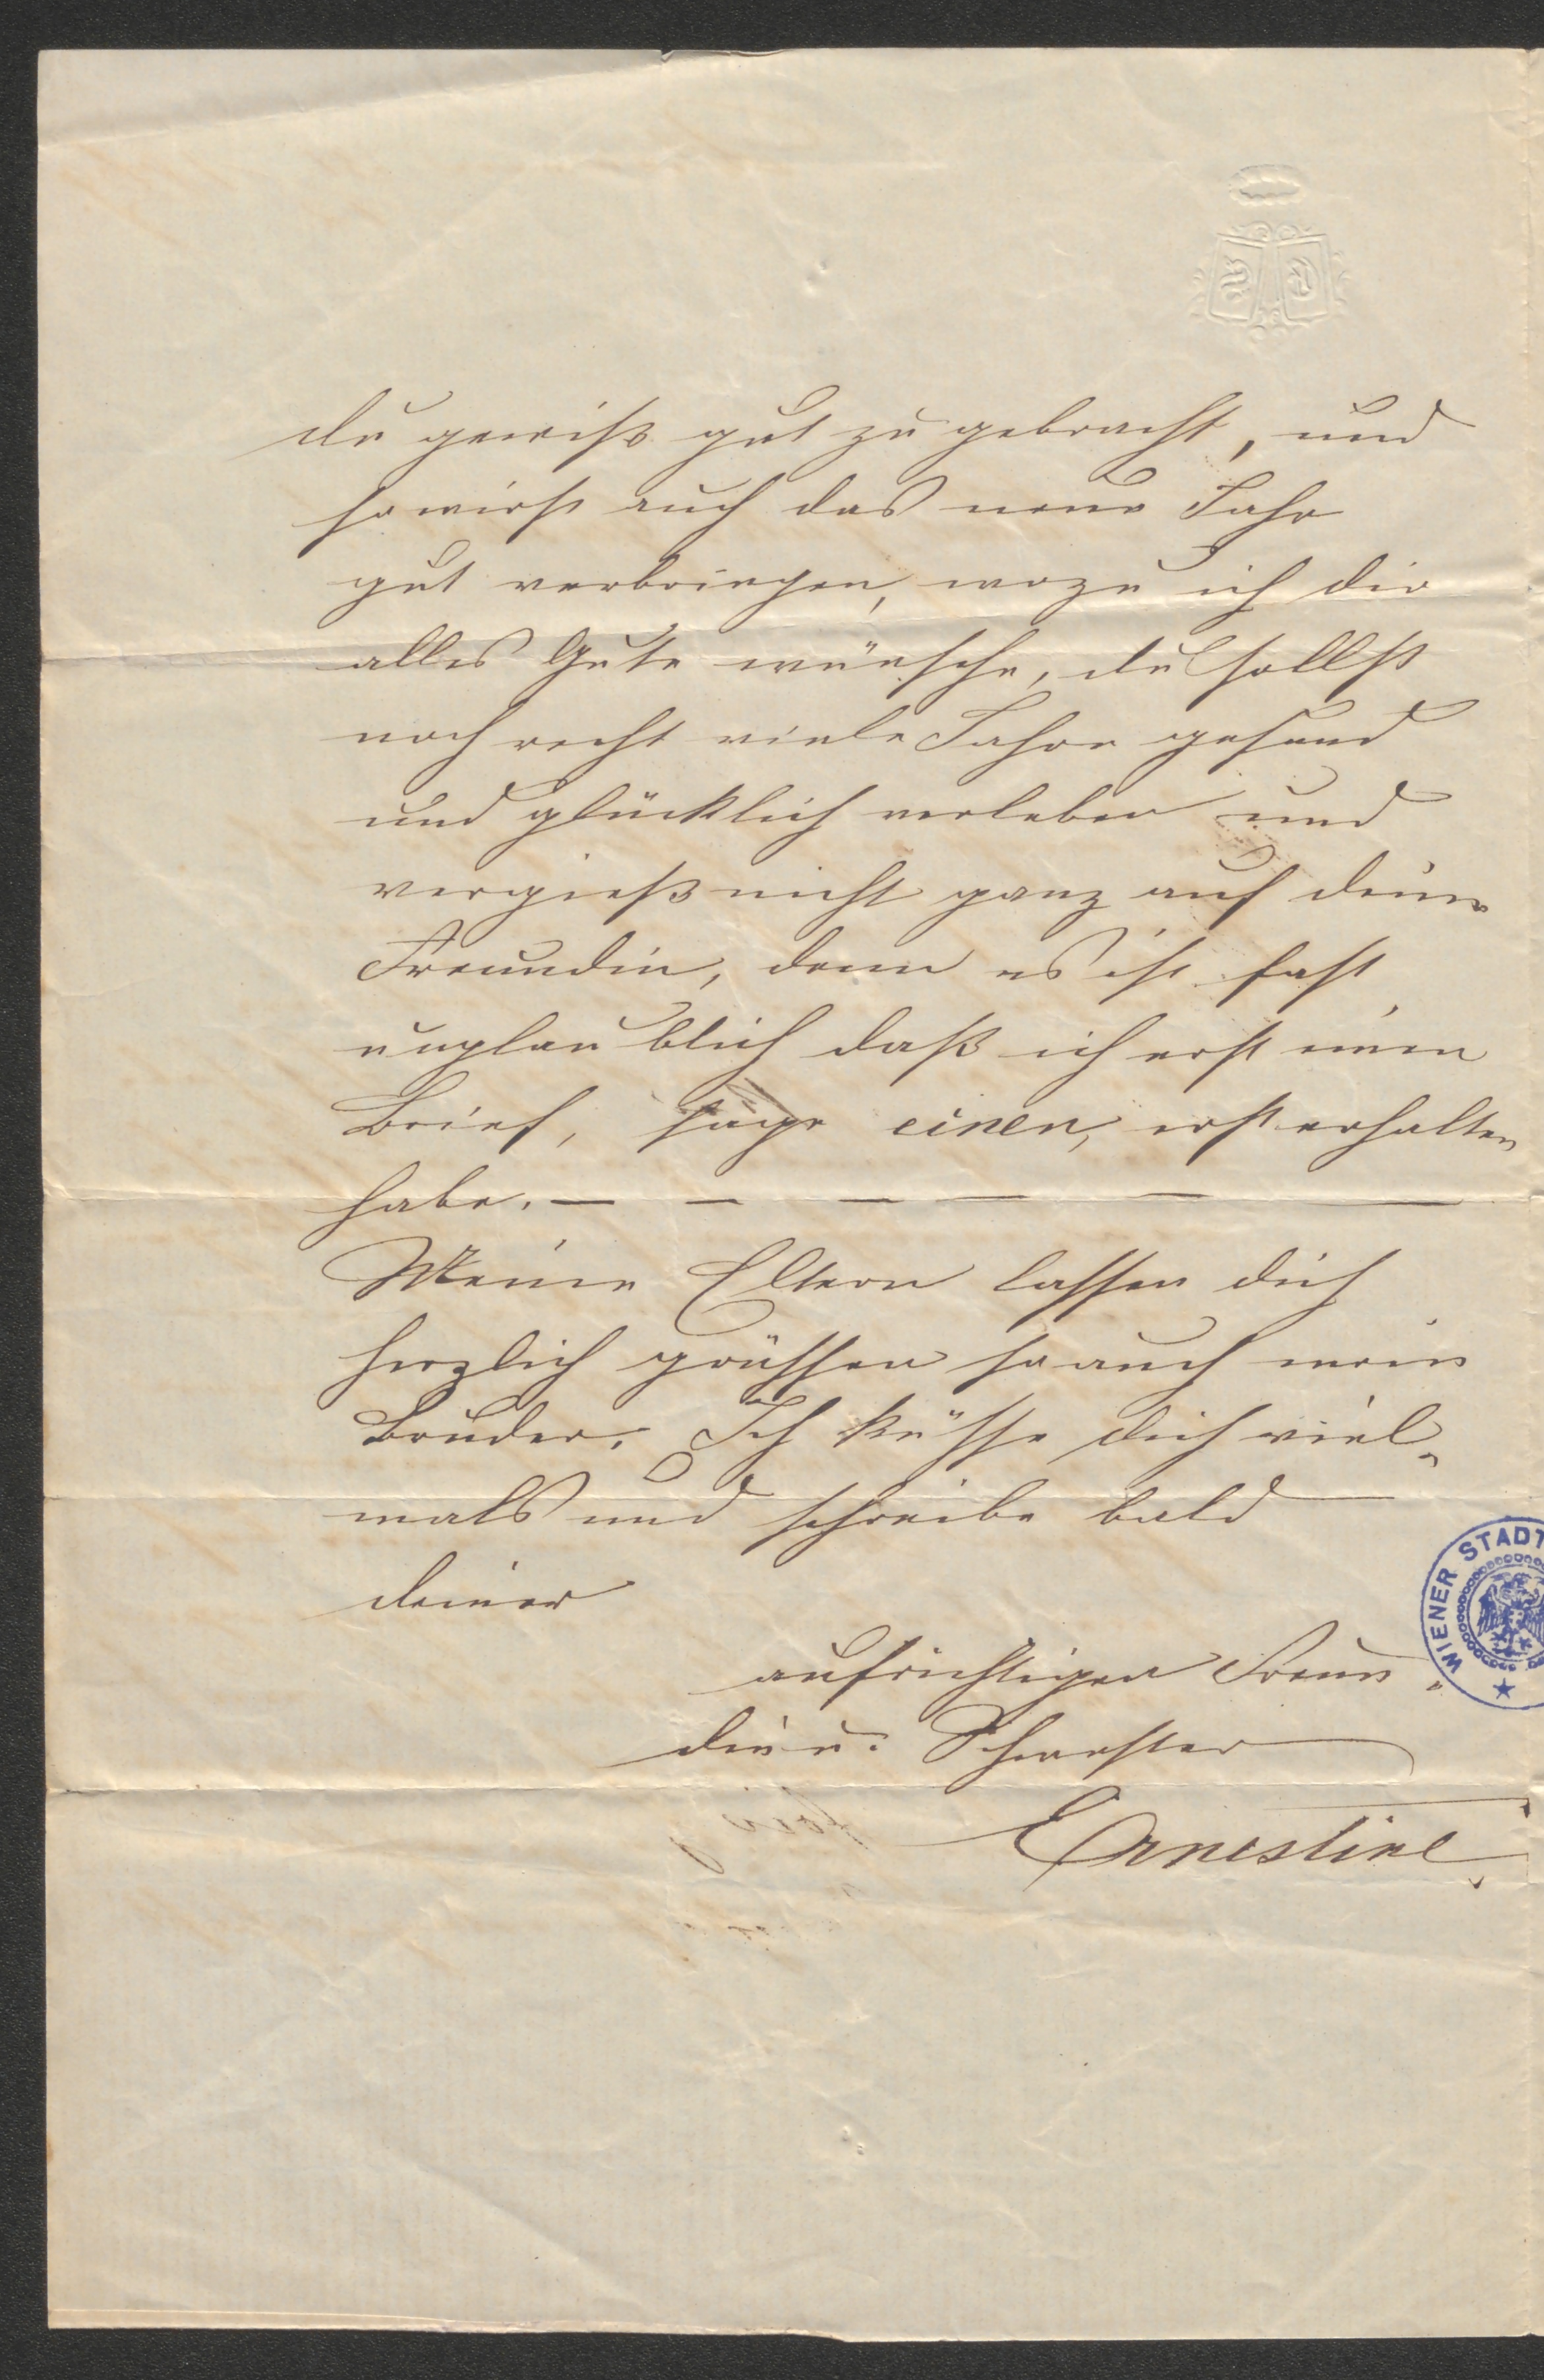 du gewiß gut zu gebracht, und
so wirst auch das neue Jahr
gut verbringen, wozu ich dir
alles Gute wünsche, du sollst
noch recht viele Jahre gesund
und glücklich verleben und
vergieß nicht ganz auf deine
Freundin, denn es ist fast
unglaublich daß ich erst einen
Brief, sage einen, erst erhalten
habe. — — — — — —
Meine Eltern lassen dich
herzlich grüssen so auch mein
Bruder. Ich küsse dich viel-
mals und schreibe bald
deiner
aufrichtigen Freun-
din u. Schwester
Ernestine
WIENER STADT